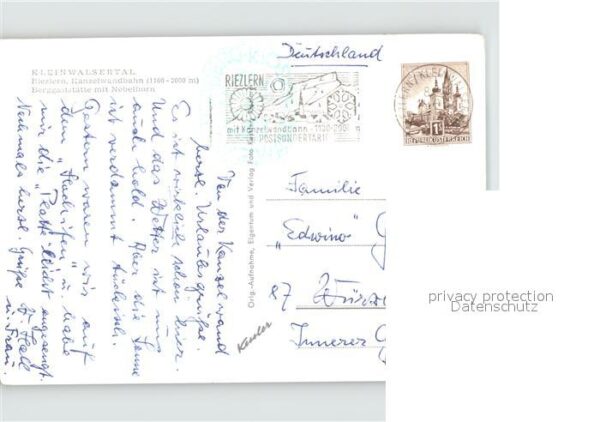 KLEINWALSERTAL
Riezlern, Kanzelwandbahn (1100-2000 m)
Berggaststätte mit Nebelhorn
RIEZLERN
mit Kanzelwandbahn - 1100-2000 m
POSTSONDERTARIF
Deutschland
REPUBLIK ÖSTERREICH
Von der Kanzelwand
herzl. Urlaubsgrüße.
Es ist wirklich schön hier.
Und das Wetter ist uns
auch hold. Aber die Sonne
ist verdammt
Gestern waren wir auf
dem "Hochifen" u. habe
mir die "Platte" leicht angesengt.
Nochmals herzl. Grüße
u. Frau.
Kessler
Orig.-Aufnahme, Eigentum und Verlag Foto
Familie
"Edwino" G
87 Würz
Innerer G
privacy protection
Datenschutz